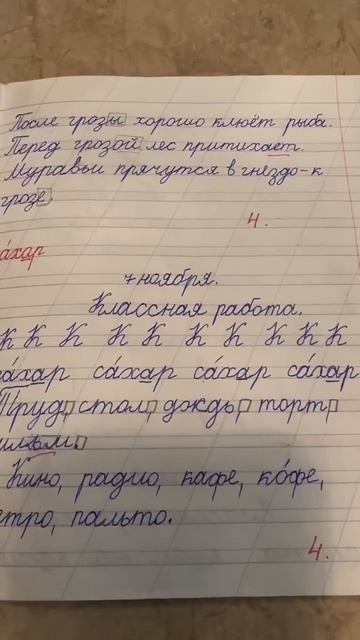 После грозы хорошо клюёт рыба.
Перед грозой лес притихает.
Муравьи прячутся в гнёздо-к
грозе.
4.
са́хар
7 ноября.
Классная работа.
К К К К К К К К К К
са́хар са́хар са́хар са́хар
Труд, стол, дождь, торт,
Кино, радио, кафе, ко́фе,
метро, пальто.
4.